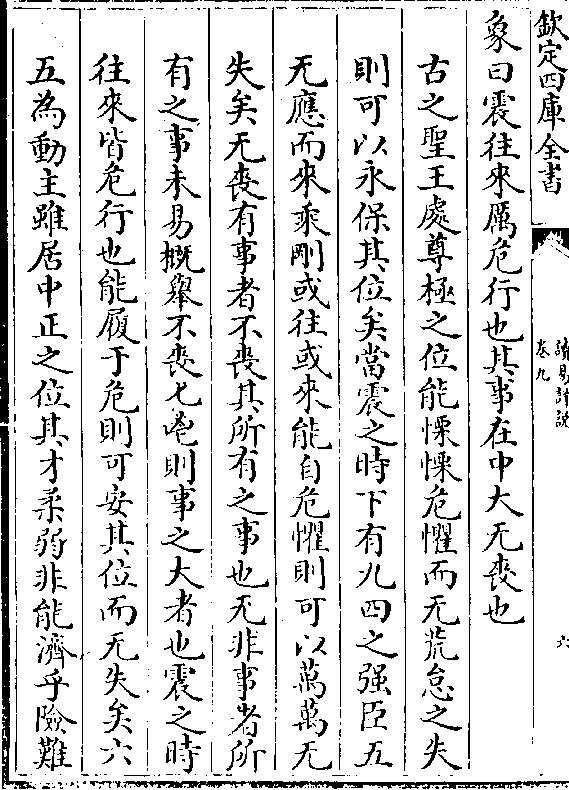 欽定四庫全書
讀易詳說
卷九
六
象曰震往來厲危行也其事在中大无喪也
古之聖王處尊極之位能慄慄危懼而无荒怠之失
則可以永保其位矣當震之時下有九四之强臣五
无應而來乘剛或往或來能自危懼則可以萬萬无
失矣无喪有事者不喪其所有之事也无非事者所
有之事未易概舉不喪匕鬯則事之大者也震之時
往來皆危行也能履于危則可安其位而无失矣六
五為動主雖居中正之位其才柔弱非能濟乎險難